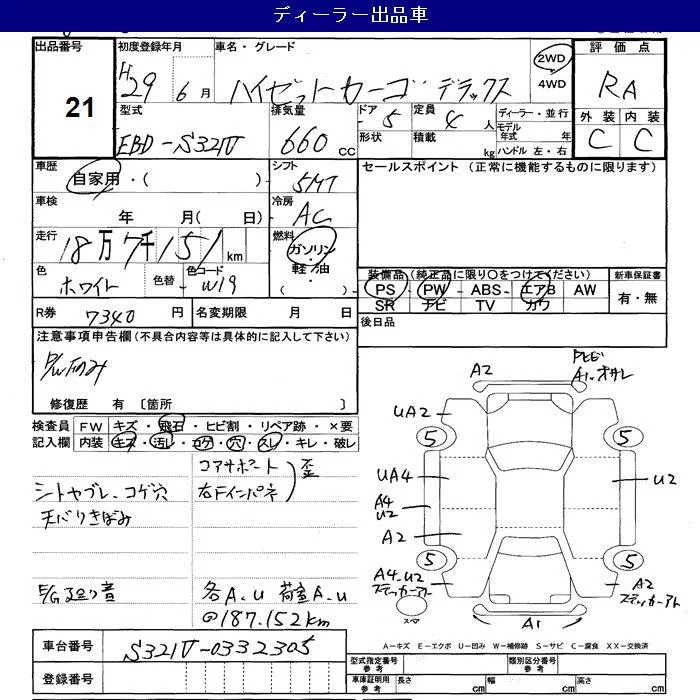 ディーラー出品車
出品番号 初度登録年月 車名・グレード 評価点
21
H29 6月 ハイゼットカーゴ デラックス 2WD 4WD RA
型式 排気量 ドア 定員 ディーラー・並行 外装 内装
EBD-S321V 660cc 5 4人 モデル年式 年 C C
形状 積載 kg ハンドル 左・右
車歴 シフト セールスポイント (正常に機能するものに限ります)
自家用・( ) 5MT
車検 冷房
年 月(日) AC
走行 燃料
18万7千151km ガソリン・軽油・( )
色 色替 色コード
ホワイト W19
装備品(純正品に限り〇をつけてください) 新車保証書
PS PW ABS エアB AW 有・無
SR ナビ TV カワ
R券 7340円 名変期限 月 日 後日品
注意事項申告欄(不具合内容等は具体的に記入して下さい)
P/W下のみ
修復歴 有〔箇所 〕
検査員 FW キズ・飛石・ヒビ割・リペア跡・×要
記入欄 内装 キズ・汚レ・コゲ・穴・スレ・キレ・破レ
コアサポート
右Fインパネ 歪
シートヤブレ、コゲ穴
天バリきばみ
E/G廻り音 各A.U 荷室A.U
@187.152km
A2 A1
UA2 5 5
UA4 U2
A4
U2
A2
5 5
A4.U2 A2
ステッカーアト ステッカーアト
スペア A1
車台番号 S321V-0332305
登録番号
A-キズ E-エクボ U-凹み W-補修跡 S-サビ C-腐食 XX-交換済
型式指定番号 参考 類別区分番号 参考
車庫証明用 参考 長さ cm 幅 cm 高さ cm